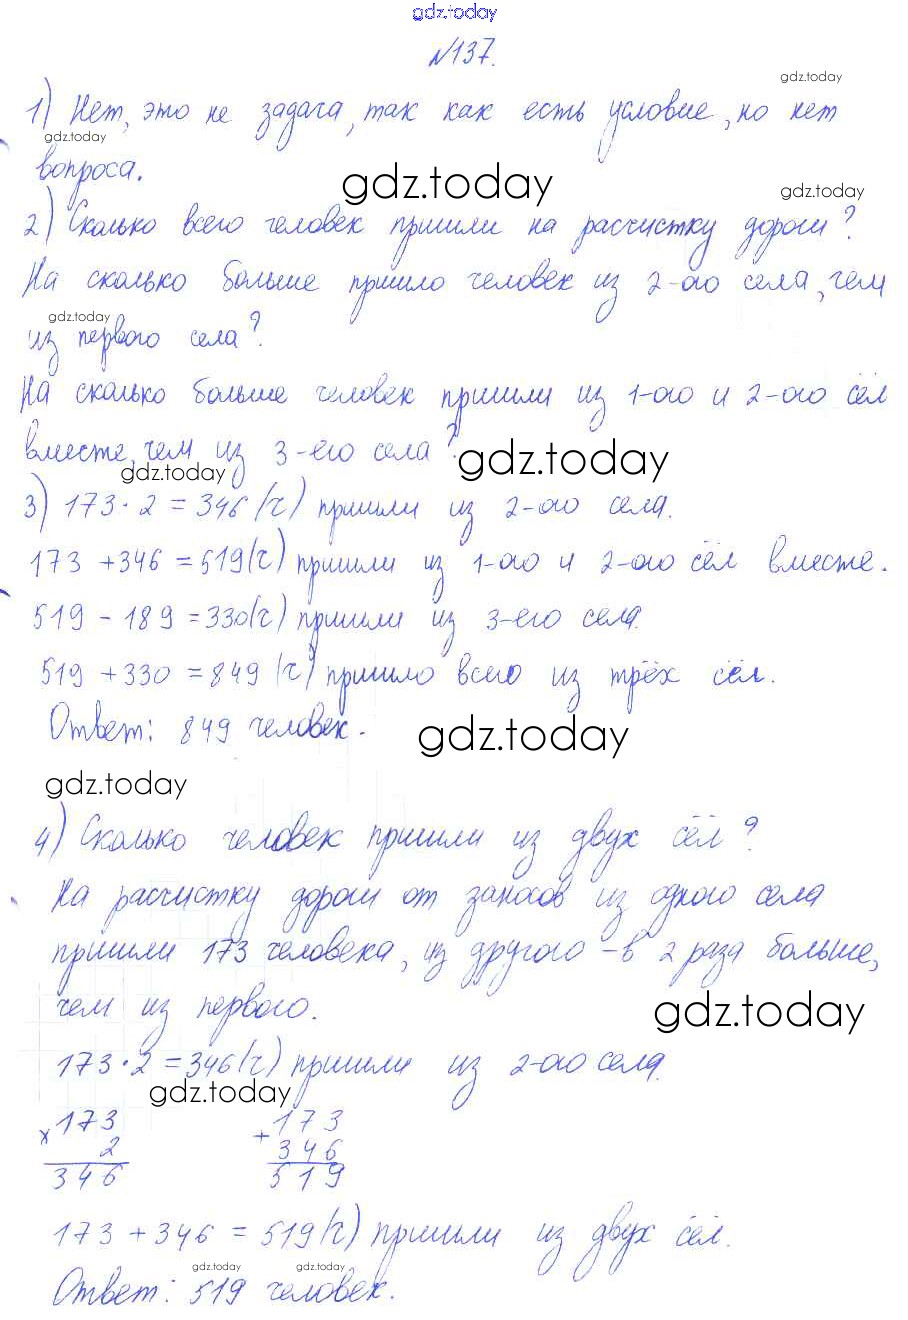 gdz.today
№137.
gdz.today
1) Нет, это не задача, так как есть условие, но нет
gdz.today
вопроса.
gdz.today
gdz.today
2) Сколько всего человек пришли на расчистку дороги?
На сколько больше пришло человек из 2-ого села, чем
gdz.today
из первого села?
На сколько больше человек пришли из 1-ого и 2-ого сёл
вместе, чем из 3-его села?
gdz.today
gdz.today
3) 173 · 2 = 346 (ч) пришли из 2-ого села.
173 + 346 = 519 (ч) пришли из 1-ого и 2-ого сёл вместе.
519 - 189 = 330 (ч) пришли из 3-его села.
519 + 330 = 849 (ч) пришло всего из трёх сёл.
Ответ: 849 человек.
gdz.today
gdz.today
4) Сколько человек пришли из двух сёл?
На расчистку дороги от заносов из одного села
пришли 173 человека, из другого - в 2 раза больше,
чем из первого.
gdz.today
173 · 2 = 346 (ч) пришли из 2-ого села.
gdz.today
× 173 + 173
2 346
346 519
173 + 346 = 519 (ч) пришли из двух сёл.
gdz.today gdz.today
Ответ: 519 человек.